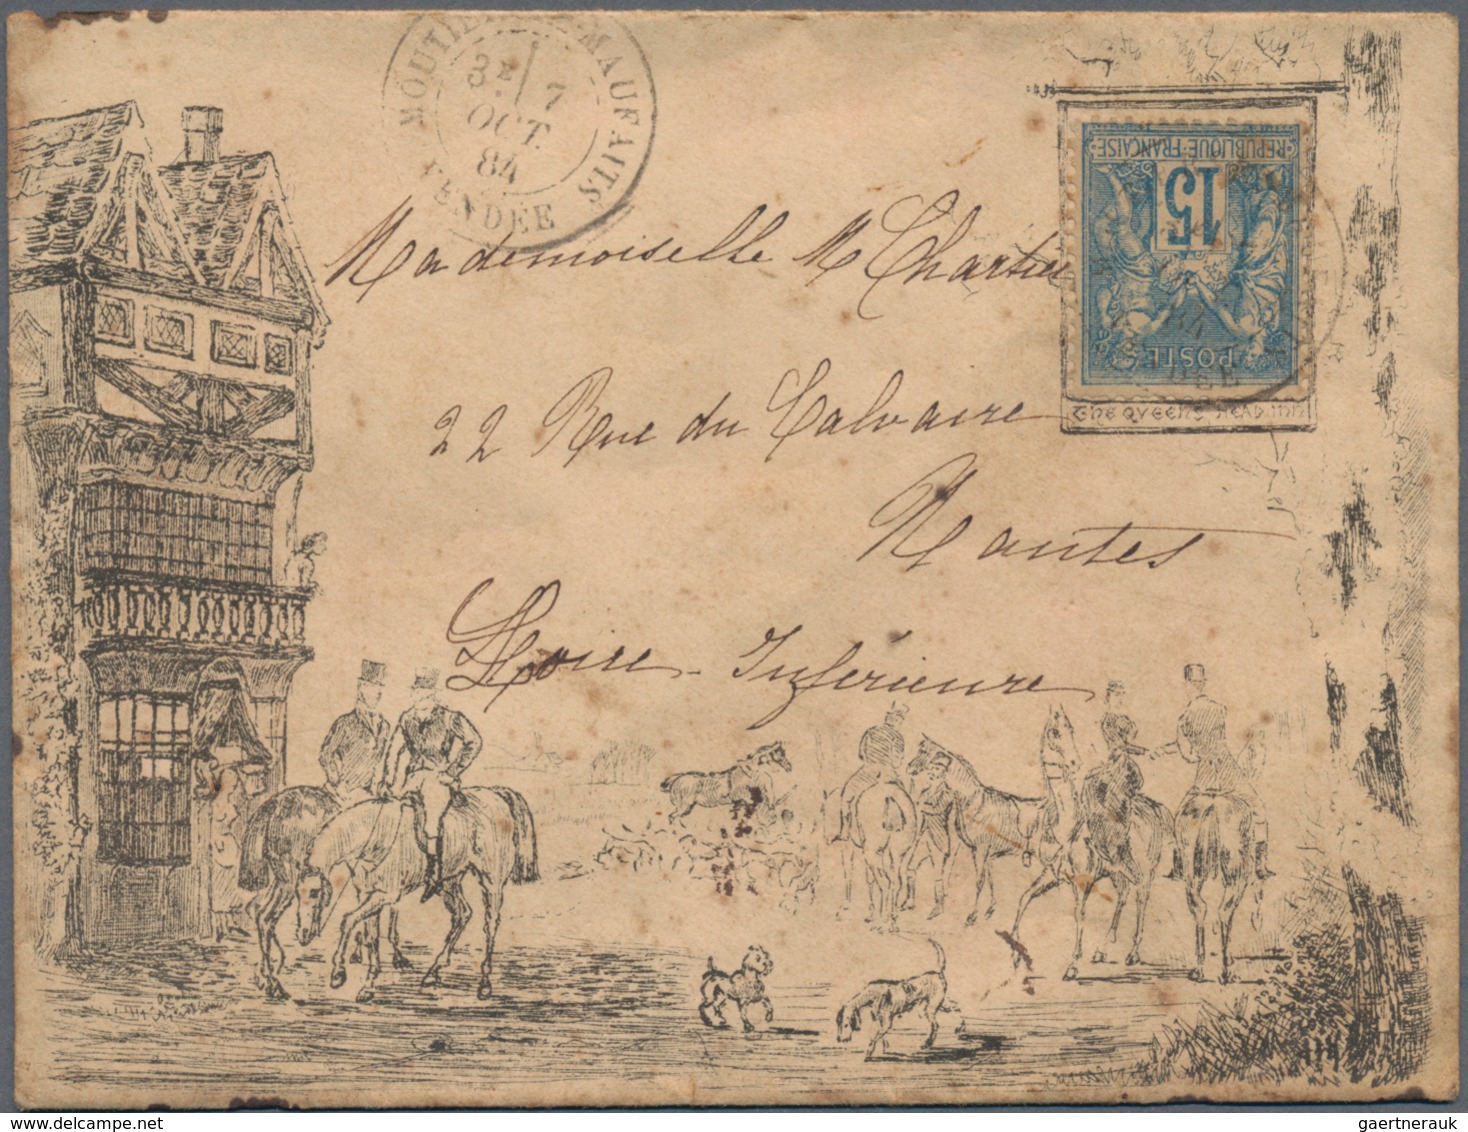 MOUTI MAUFAITS
3E 7
OCT
84
VENDÉE
REPUBLIQUE FRANÇAISE
15
POSTE
84
THE QVEENS HEAD INN
Mademoiselle M Chartier
22 Rue du Calvaire
Nantes
Loire-Inférieure
gaertnerauk